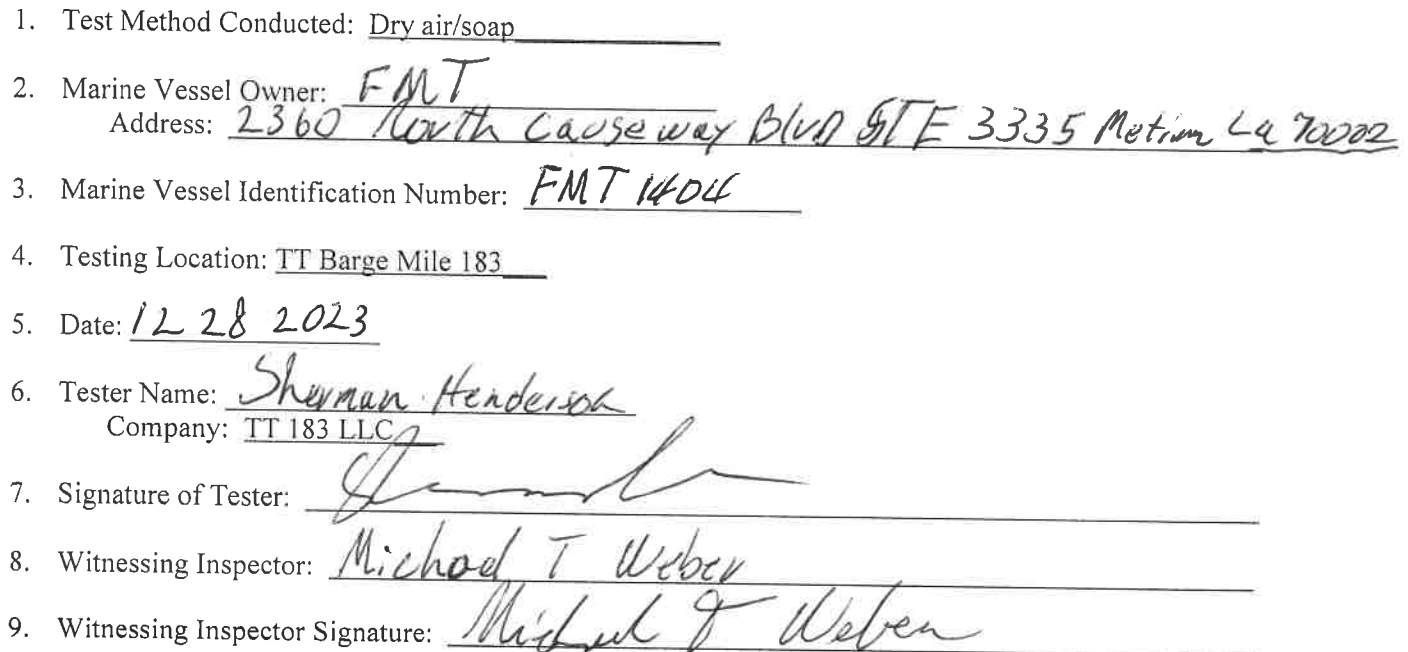 1. Test Method Conducted: Dry air/soap
2. Marine Vessel Owner: FMT
Address: 2360 North Causeway Blvd STE 3335 La 70002
3. Marine Vessel Identification Number: FMT 1404
4. Testing Location: TT Barge Mile 183
5. Date: 12 28 2023
6. Tester Name: Sherman Henderson
Company: TT 183 LLC
7. Signature of Tester:
8. Witnessing Inspector: Michael T Weber
9. Witnessing Inspector Signature: Michael T Weber